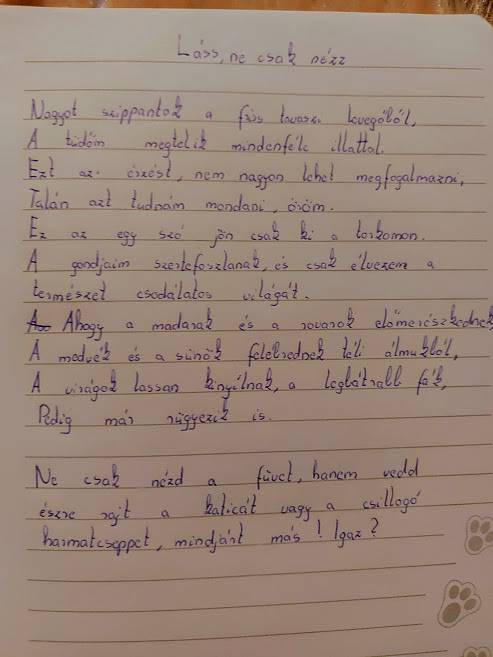 Láss, ne csak nézz
Nagyot szippantok a friss tavaszi levegőből,
A tüdőm megtelik mindenféle illattal.
Ezt az érzést, nem nagyon lehet megfogalmazni,
Talán azt tudnám mondani, öröm.
Ez az egy szó jön csak ki a torkomon.
A gondjaim szertefoszlanak, és csak élvezem a
természet csodálatos világát.
Ahogy a madarak és a rovarok előmerészkednek
A medvék és a sünök felébrednek téli álmukból,
A virágok lassan kinyílnak, a legbátrabb fák,
Pedig már rügyezik is.
Ne csak nézd a füvet, hanem vedd
észre rajt a katicát vagy a csillogó
harmatcseppet, mindjárt más! Igaz?